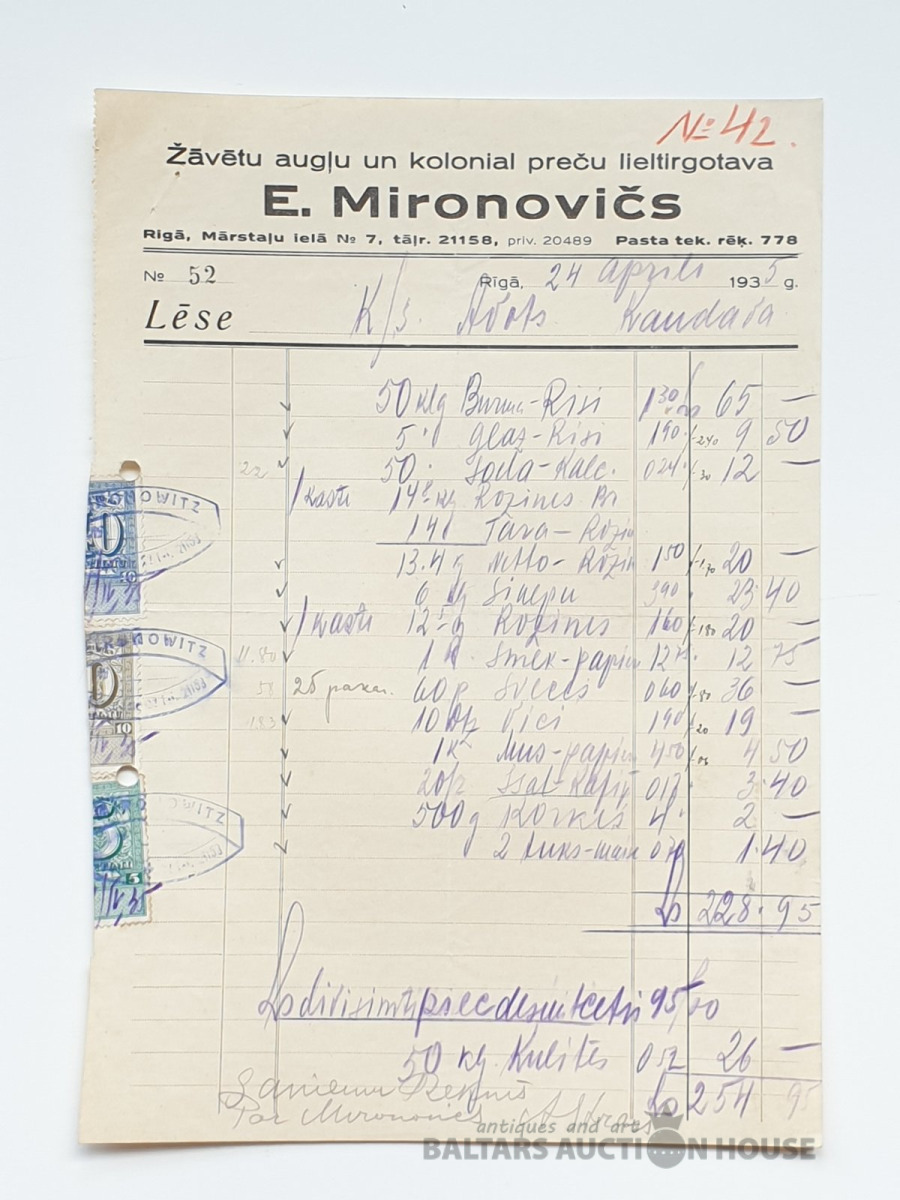 № 42.
Žāvētu augļu un kolonial preču lieltirgotava
E. Mironovičs
Rīgā, Mārstaļu ielā № 7, tāļr. 21158, priv. 20489 Pasta tek. rēķ. 778
№ 52 Rīgā, 24 aprili 1935 g.
Lēse K/s. Avots Kandava
50 klg Burma-Risi 1 30 65 —
5 " Glaz-Risi 1 90 /-2 40 9 50
22 50 " Soda-Kalc. 0 24 /-30 12 —
1 kaste 14 kg Rozines Br
Tara-Rozin
13.4 g Netto-Rozin 1 50 20 —
6 kg Sinepu 3 90 23.40
1 kaste 12 g Rozines 1 60 20 —
11.80 1 Smek-papiru 12 75 12 75
58 25 pakas. 60 p Sveces 0 60 36 —
1.83 10 Vici 1 90 /-20 19 —
1 Mus-papiru 4 50 4 50
20/2 0 17 3.40
500 g Korkis 4. 2 —
2 0 70 1.40
Ls 228.95
Ls divisimti piecdesmitcetri 95/00
50 kg. Kulites 0 52 26 —
Ls 254 95
Saņiemu
Par Mironovics
MONOWITZ
10
5
antiques and arts
BALTARS AUCTION HOUSE